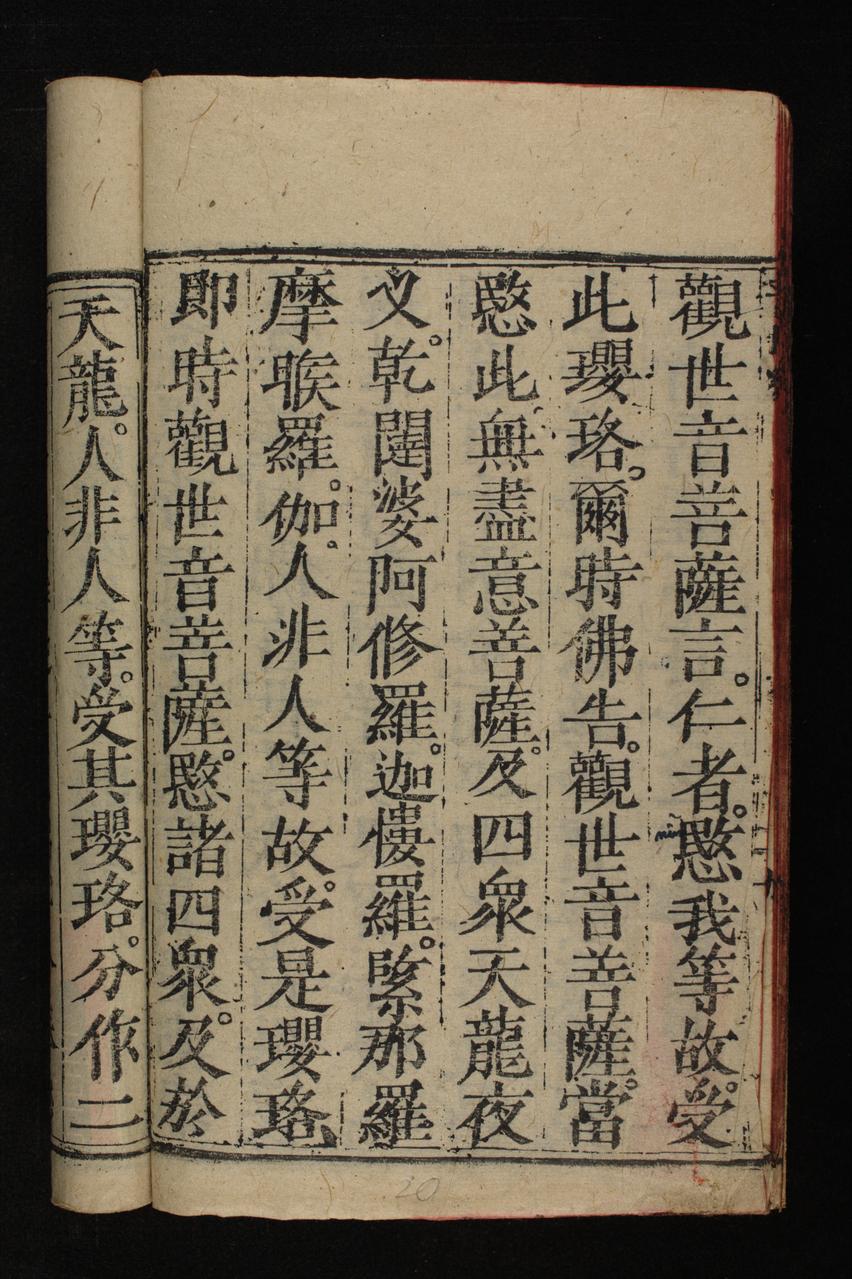 觀世音菩薩言。仁者。愍我等故。受
此瓔珞。爾時佛告。觀世音菩薩。當
愍此無盡意菩薩。及四衆天龍夜
叉。乾闥婆阿修羅。迦僂羅。緊那羅
摩睺羅。伽。人非人等故。受是瓔珞
即時觀世音菩薩。愍諸四衆。及於
天龍。人非人等。受其瓔珞。分作二
20